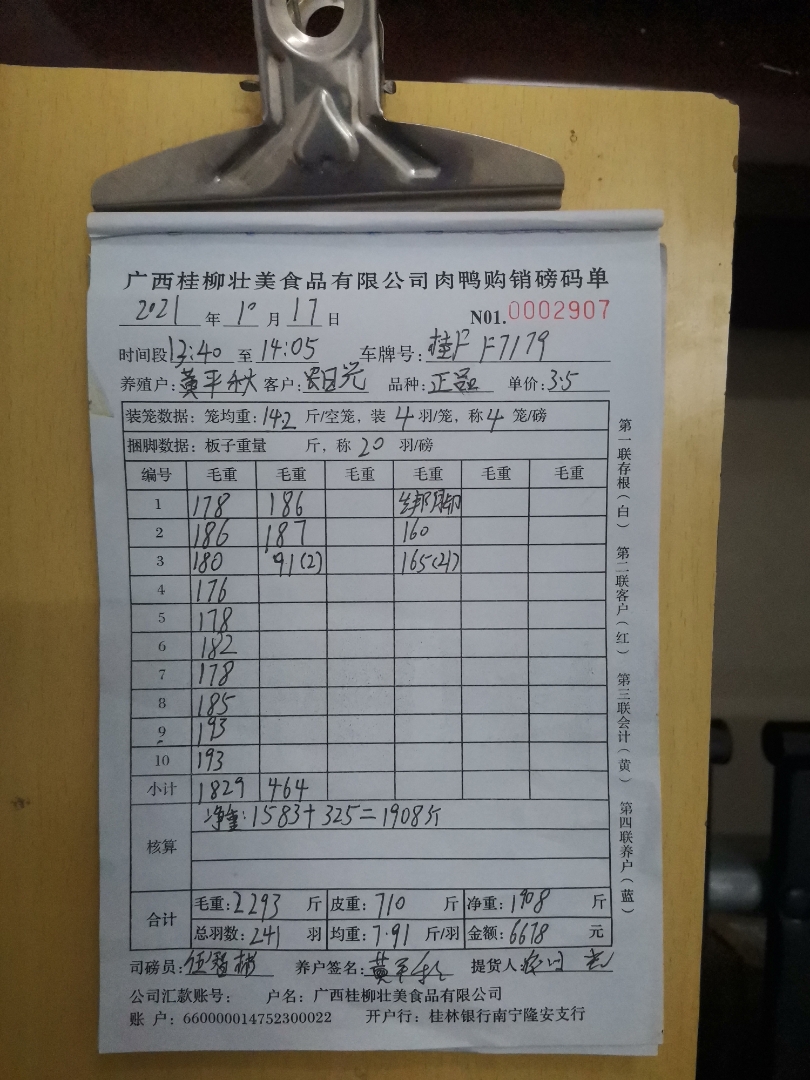 广西桂柳壮美食品有限公司肉鸭购销磅码单
2021 年 10 月 17 日 N01.0002907
时间段 13:40 至 14:05 车牌号: 桂F F7179
养殖户: 黄平秋 客户: 品种: 正品 单价: 3.5
装笼数据: 笼均重: 14.2 斤/空笼, 装 4 羽/笼, 称 4 笼/磅
捆脚数据: 板子重量 斤, 称 20 羽/磅
编号 毛重 毛重 毛重 毛重 毛重 毛重
1 178 186
2 186 187 160
3 180 91(2) 165(21)
4 176
5 178
6 182
7 178
8 185
9 193
10 193
小计 1829 464
核算 净重: 1583+325=1908斤
合计
毛重: 2293 斤 皮重: 710 斤 净重: 1908 斤
总羽数: 241 羽 均重: 7.91 斤/羽 金额: 6678 元
司磅员: 养户签名: 黄平秋 提货人:
公司汇款账号: 户名: 广西桂柳壮美食品有限公司
账 户: 660000014752300022 开户行: 桂林银行南宁隆安支行
第一联存根(白) 第二联客户(红) 第三联会计(黄) 第四联养户(蓝)